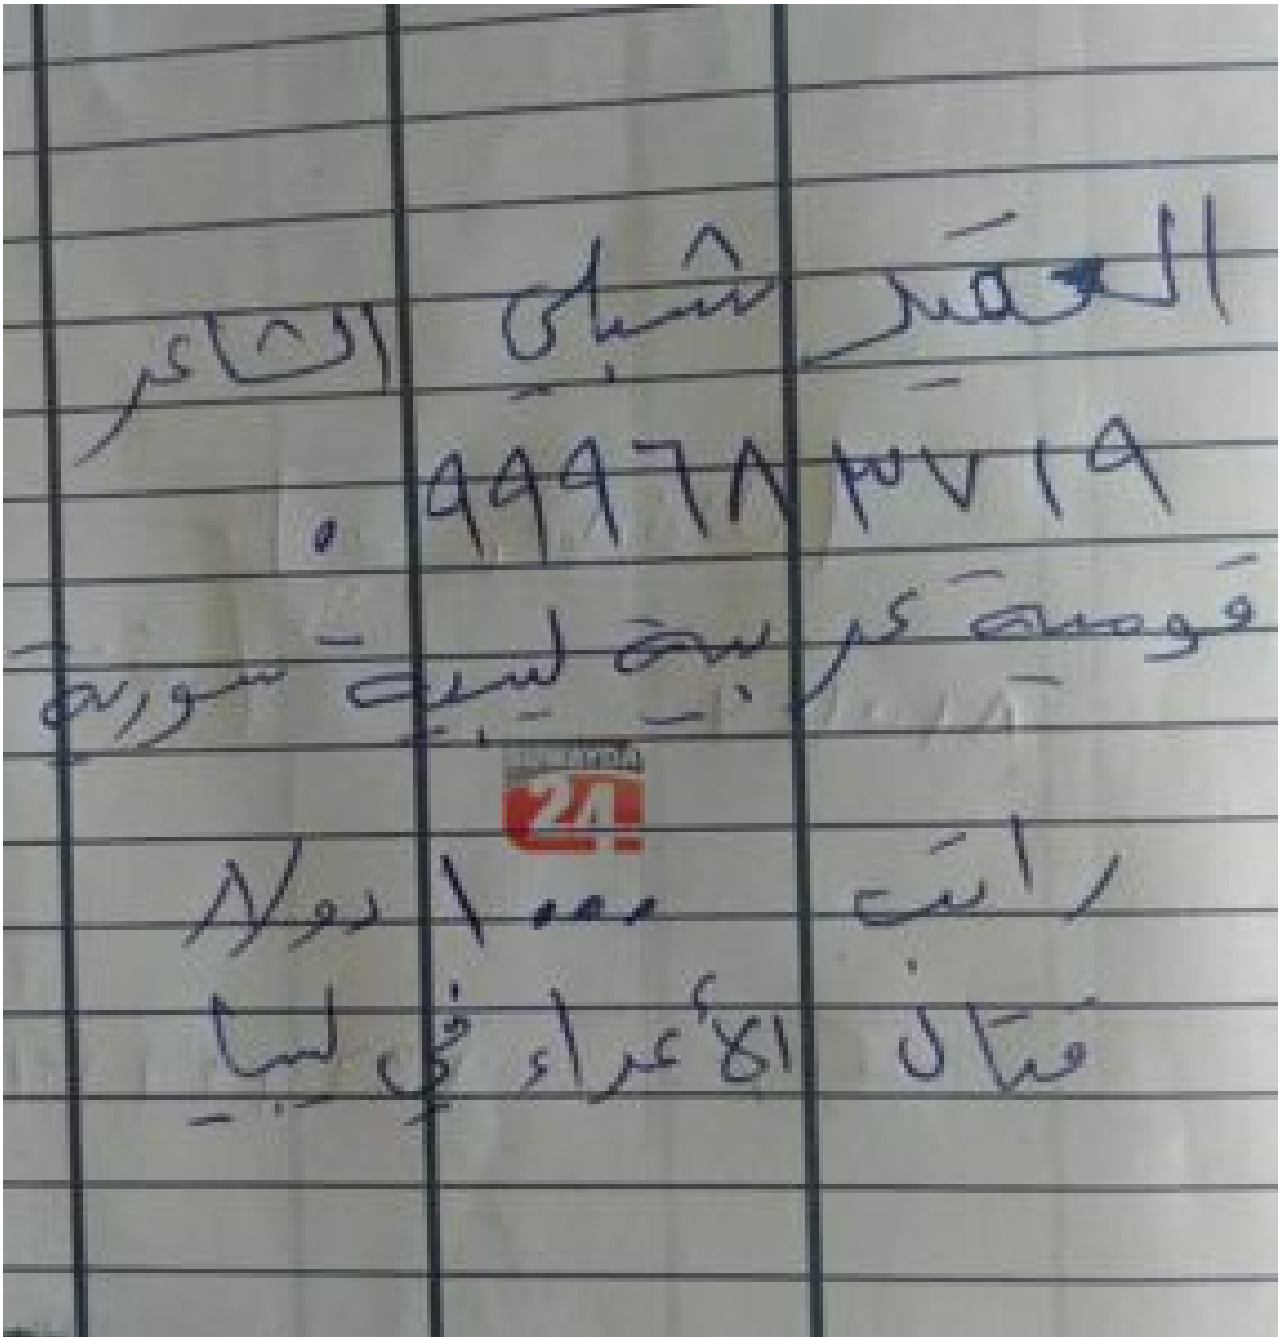 العقيد شبلي الشاعر
٠٩٩٩٦٨٣٧١٩
قومية عربية ليبية سورية
24
راتب ١٠٠٠ دولار
قتال الأعداء في ليبيا